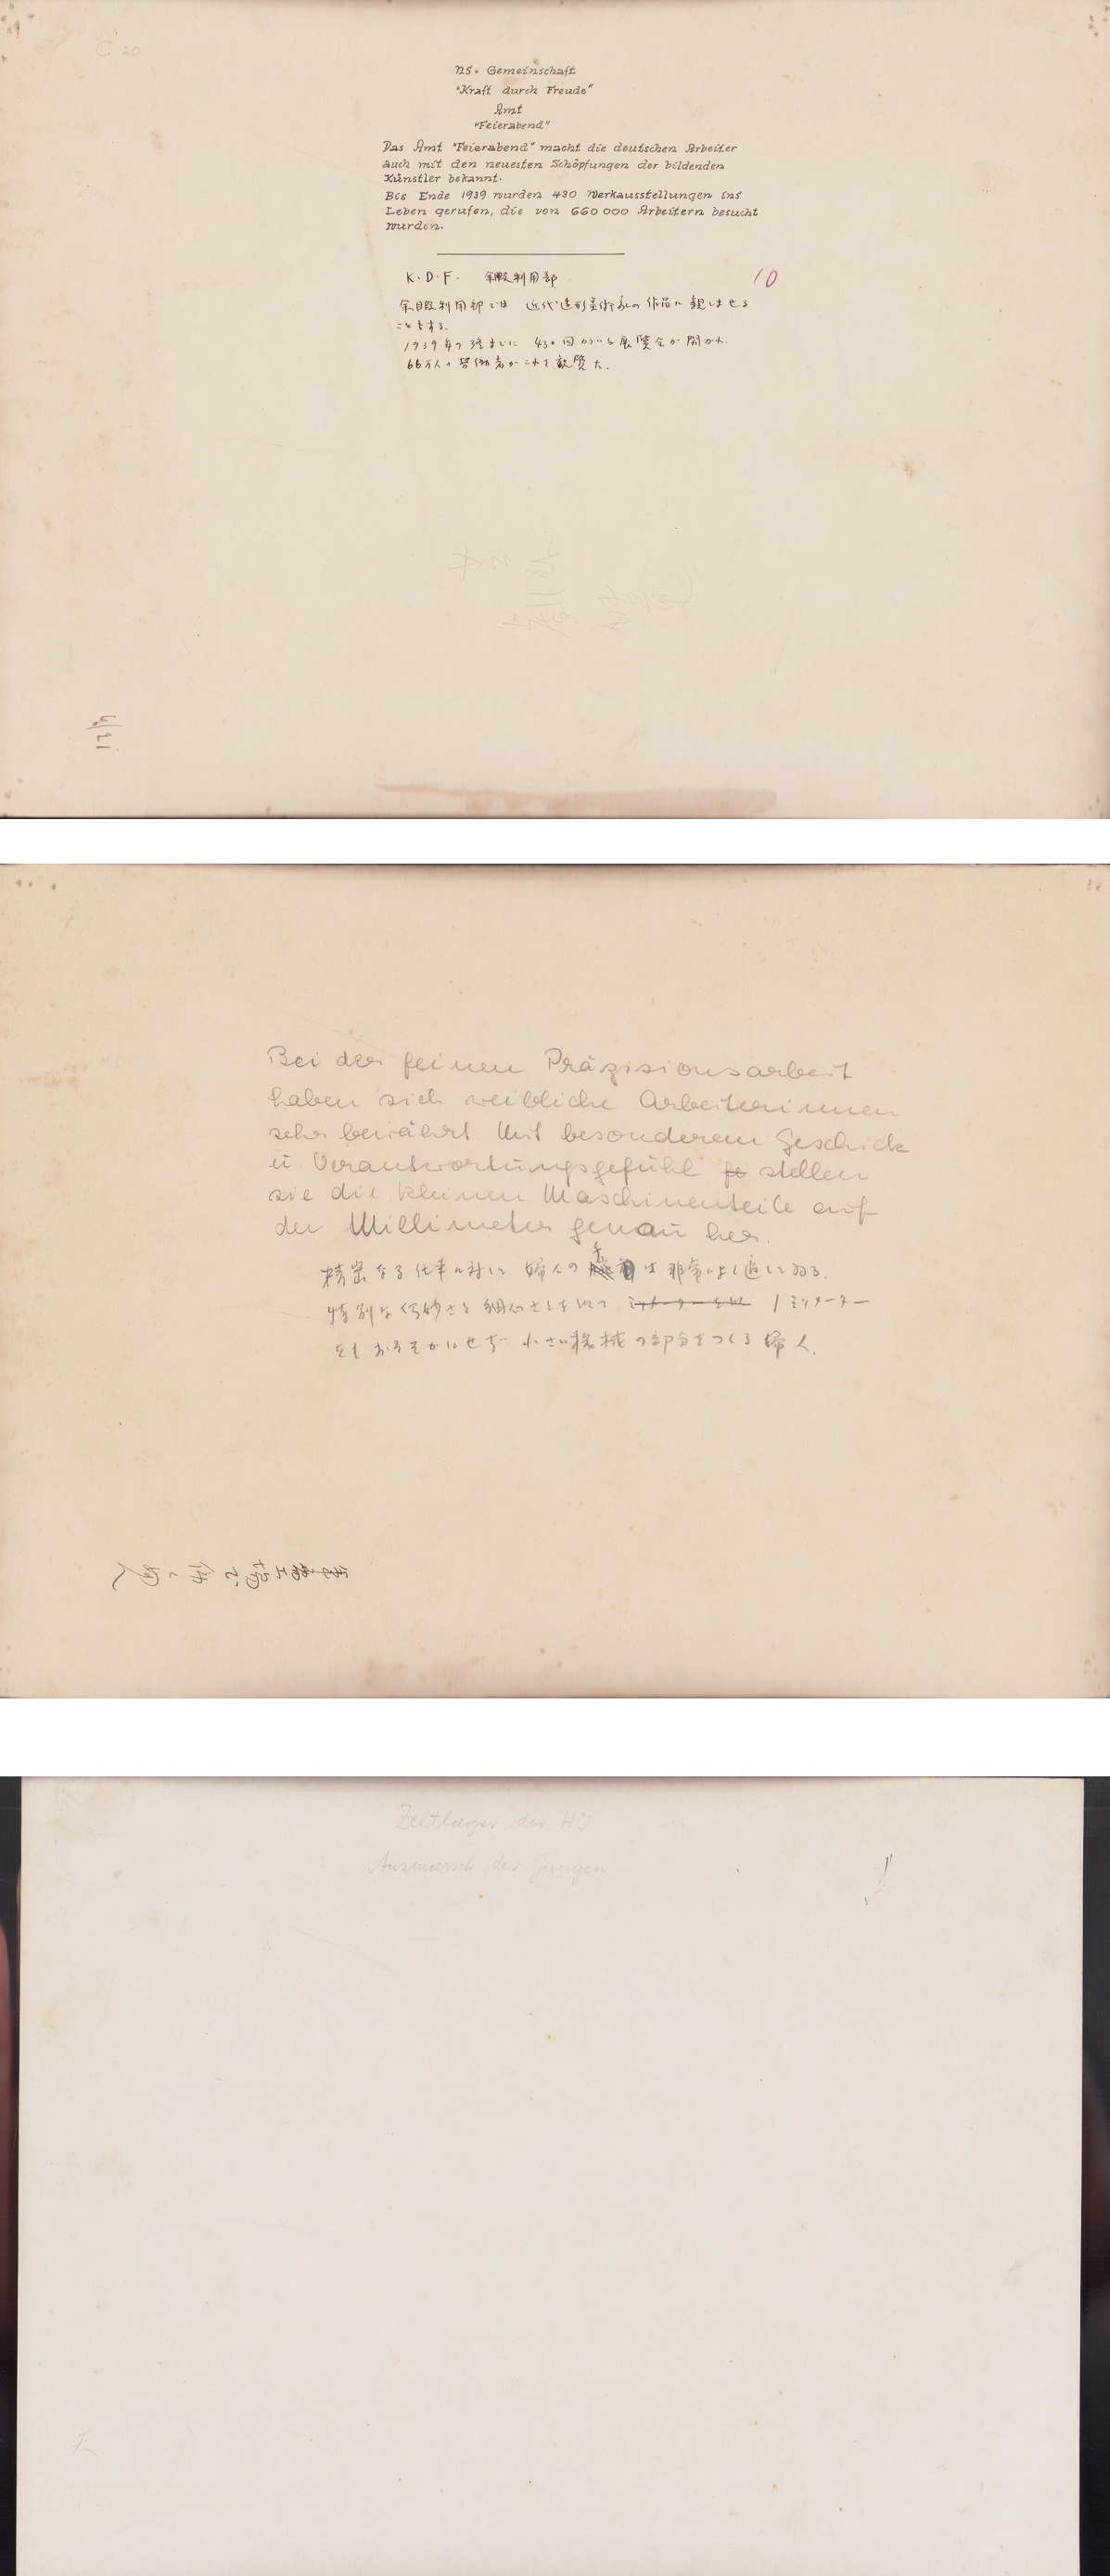 C 20
NS. Gemeinschaft
"Kraft durch Freude"
Amt
"Feierabend"
Das Amt "Feierabend" macht die deutschen Arbeiter
auch mit den neuesten Schöpfungen der bildenden
Künstler bekannt.
Bis Ende 1939 wurden 430 Werkausstellungen ins
Leben gerufen, die von 660 000 Arbeitern besucht
wurden.
K.D.F. 余暇利用部
10
余暇利用部では 近代造形美術家の作品に親しませる
こともする.
1939年の終までに 430回 展覧会が開かれ
66万人の労働者がこれを観覧た.
Bei der feinen Präzisionsarbeit
haben sich weibliche Arbeiterinnen
sehr bewährt. Mit besonderem Geschick
u. Verantwortungsgefühl stellen
sie die kleinen Maschinenteile auf
den Millimeter genau her.
精密なる仕事に対して 婦人の手は非常によく適してゐる.
特別な巧妙さと細心さとを以て 1ミリメーター
をもおろそかにせず 小さい機械の部分をつくる婦人.
Zeltlager der HJ
Ausmarsch der Jungen